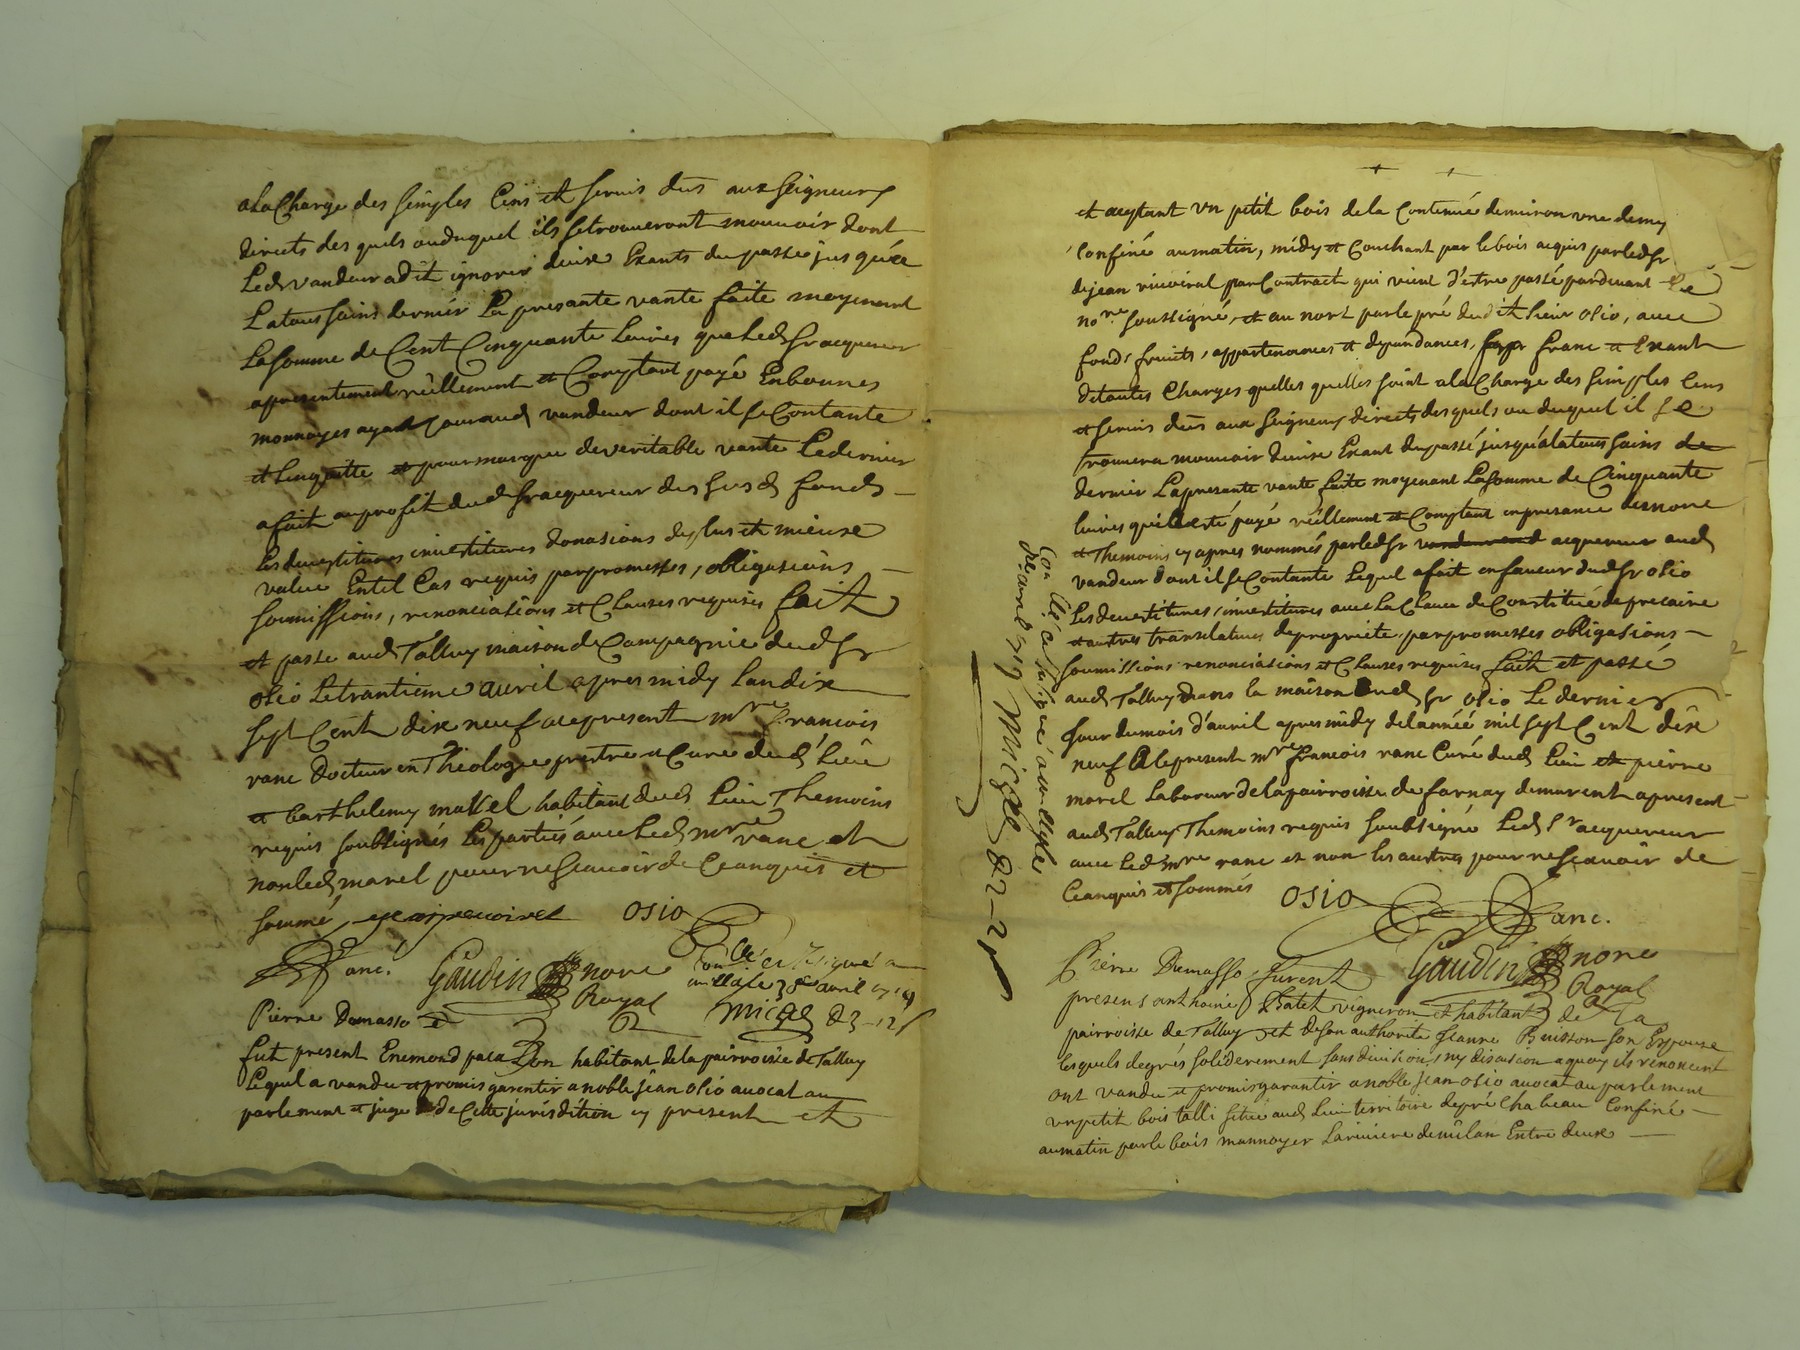 a La Charge des simples Cens et servis dus aux seigneurs
directs des quels ou duquel ils se trouveront mouvoir dont
Led vandeur a dit ignorer divise Exants du passé jusqu'ée
La toussains dernier La presante vante faite moyenant
La somme de Cent Cinquante Livres que Led sr acquereur
apresentement réellement et Comptant payé En bonnes
monnoyes ayant cour aud vandeur dont il se Contante
et L'enquitte et pour marque de veritable vante Le dernier
a fait au profit dud sr acquereur des susd fonds
Les devestitures investitures donasions de plus et mieuse
value En tel Cas requis par promesses, obligasions
soumissions, renonciasions et Clauses requises fait
et passé aud Talluy maison de Campagnie dud sr
osio Le trantieme avril apres midy L'an dix
sept Cent dix neuf a ce present mre francois
ranc docteur en Theologie prestre et Curé dud Lieu
et barthelemy matel habitant dud Lieu Themoins
requis soubsignés Les partiés avec Led mre ranc et
non led marel pour ne scavoir de Ce anquis et
sommé osio
Ranc. Gaudin nore
Royal
Con llé et signé a
millase 30e avril 1719
Pierre Dumasso
fut present Enemond pacallon habitant de la pairroisse de Talluy
Lequel a vandu et promis garentir a noble jean osio avocat au
parlement et juge de Cette jurisdition cy present et
et aceptant un petit bois de la Contenué demiron une demy
confiné au matin, midy et Couchant par le bois acquis par led sr
de jean rivoiral par Contract qui vient d'estre passé pardevant Le
nore soussigné, et au nort par le pré dudit sieur osio, avec
fond, fruits, appartenances et dependances, franc et Exant
de toutes Charges quelles quelles soint a la Charge des simples Cens
et servis dus aux seigneurs directs desquels ou duquel il se
trouvera mouvoir divise Exant du passé jusqu'a la toussains de
dernier La presante vante faite moyenant La somme de Cinquante
livres qui Lesté payé réellement et Comptant en presance desnore
et Themoins cy apres nommés par led sr vandeur aud acquereur aud
vandeur dont il se Contante Lequel a fait en faveur dud sr osio
Les devestitures, investitures avec La Clause de Constitué de precaire
et autres translatives de propriete par promesses obligasions
soumissions renonciasions et Clauses requises fait et passé
aud Talluy dans la maison dud sr osio Le dernier
jour du mois d'avril apres midy de l'année mil sept Cent dix
neuf A Le present mre francois ranc Curé dud Lieu et pierre
morel Laboreur de la pairroisse de farnay demurent apresent
aud Talluy Themoins requis soubsigné Led sr acquereur
avec Led mre ranc et non les austres pour ne scavoir de
Ce anquis et sommés osio
Ranc.
Gaudin nore
Royal
Pierre Dumasso furent
presens anthoine Chatet vigneron et habitant de La
pairroisse de Talluy et de son authorité Jeanne Buisson son Espouse
lesquels de grés solidereement sans division, ny discusion a quoy ils renoncent
ont vandu et promis garantir a noble Jean osio avocat au parlement
un petit bois talli situé aud Lieu territoire de pré Chabeau Confiné
au matin par le bois mannoyer La riviere de mûlan Entre deuse